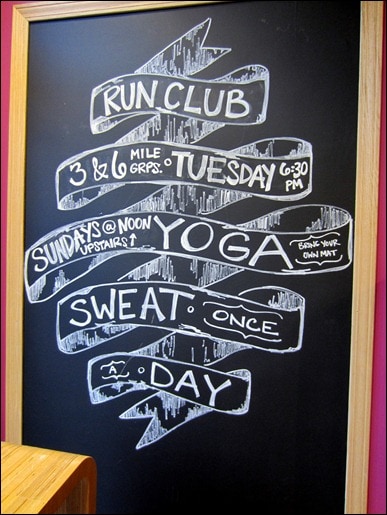 RUN CLUB
3 & 6 MILE GRPS. TUESDAY 6:30 PM
SUNDAYS @ NOON UPSTAIRS↑ YOGA BRING YOUR OWN MAT
SWEAT · ONCE
A · DAY